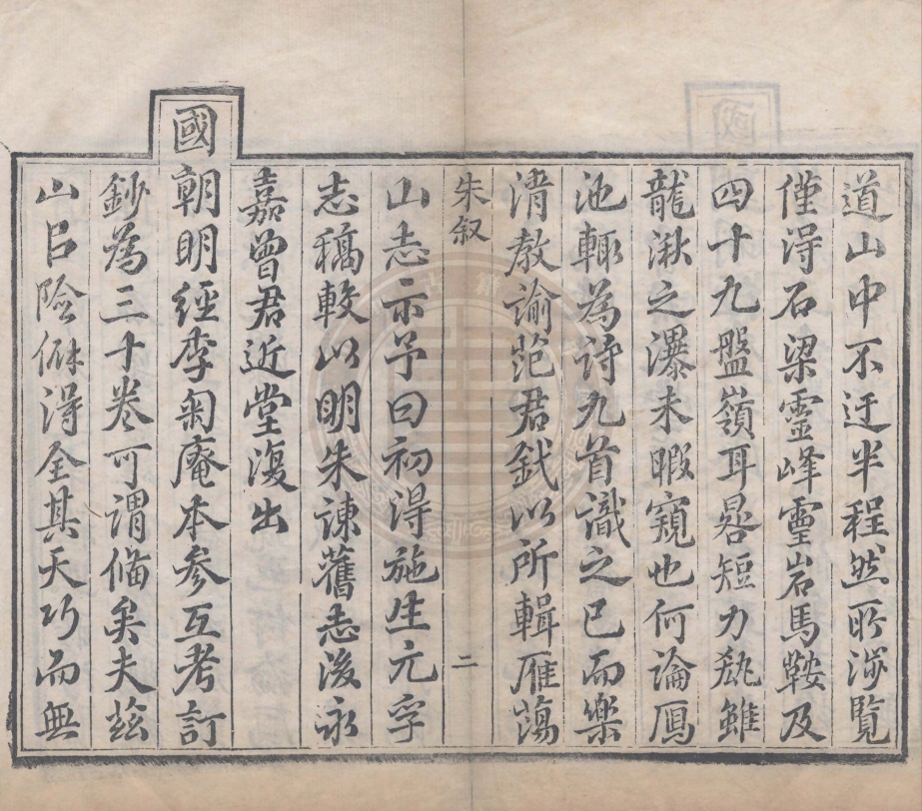 道山中不迂半程然所涉覽
僅淂石梁靈峰靈岩馬鞍及
四十九盤嶺耳晷短力雖
龍湫之瀑未暇窺也何論鴈
池輙為詩九首識之已而樂
清教諭范君以所輯雁蕩
朱叙 二
山志示予曰初淂施生元孚
志稿較以明朱諫舊志後永
嘉曾君近堂復出
國朝明經李菊庵本参互考訂
鈔為三十卷可謂俻矣夫茲
山㠯險僻淂全其天巧而無